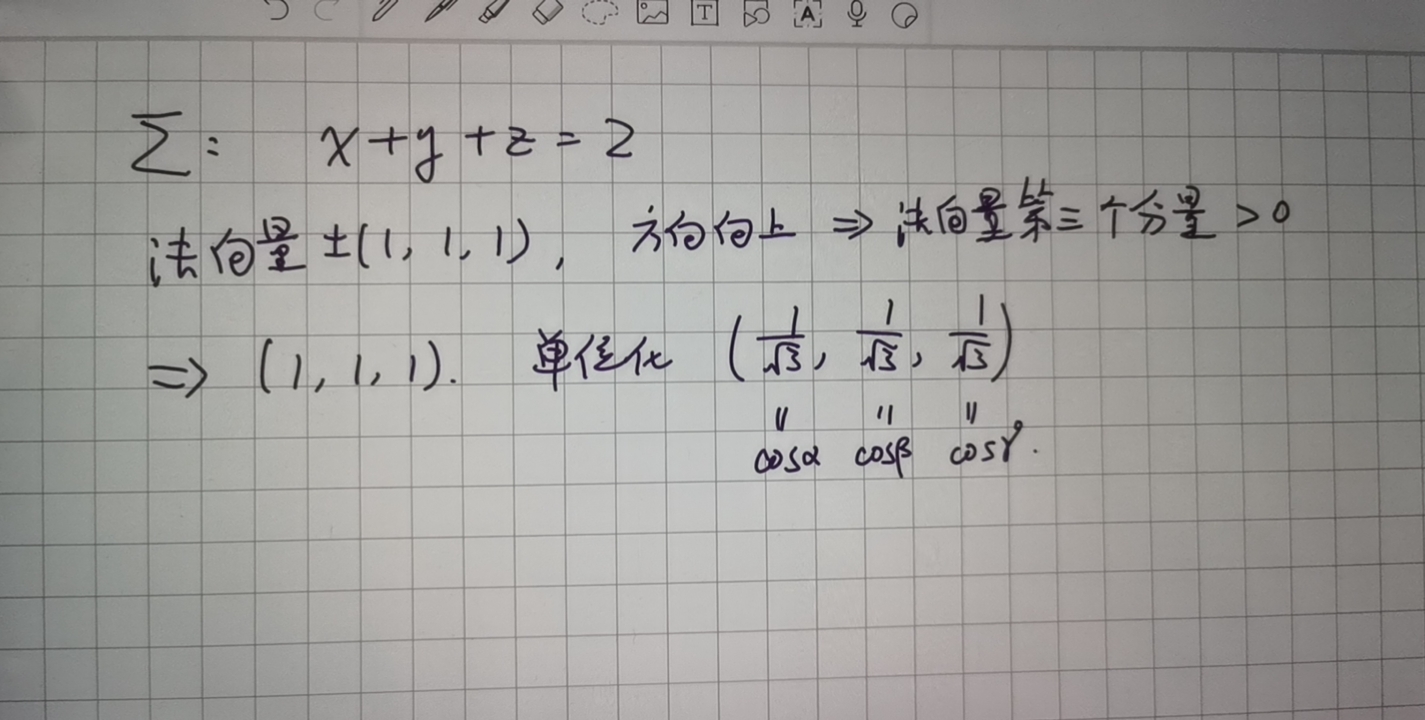 Σ: x+y+z=2
法向量 ±(1, 1, 1), 方向向上 ⇒ 法向量第三个分量 >0
⇒ (1, 1, 1). 单位化 (1/√3, 1/√3, 1/√3)
〃 〃 〃
cosα cosβ cosγ.